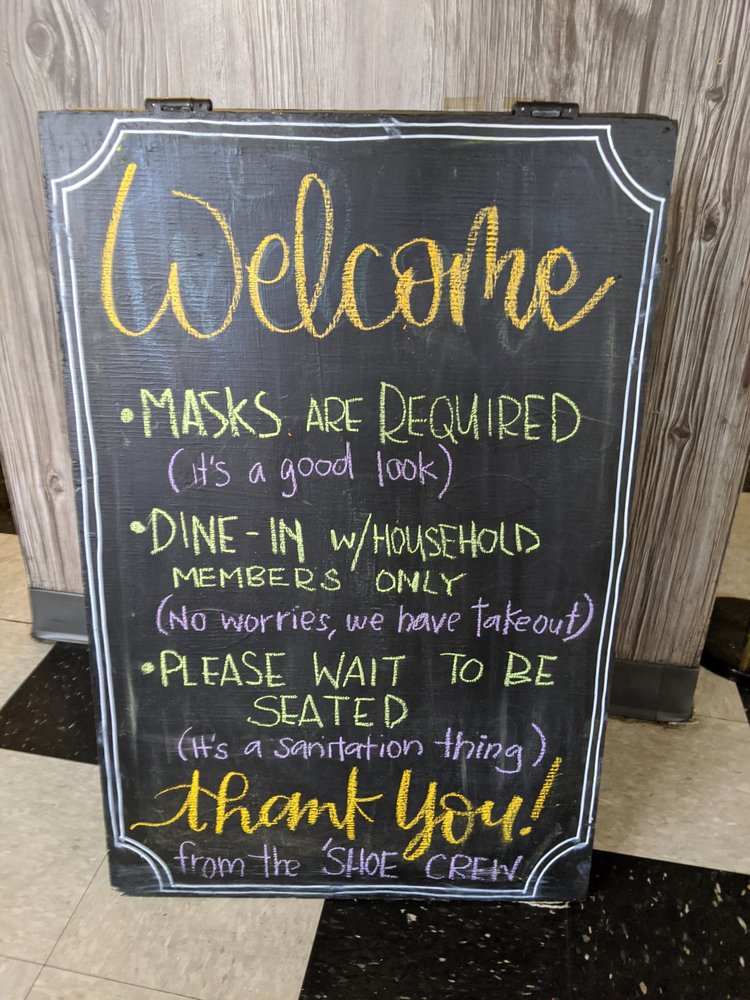 Welcome
• MASKS ARE REQUIRED
(it's a good look)
• DINE-IN W/HOUSEHOLD
MEMBERS ONLY
(No worries, we have takeout)
• PLEASE WAIT TO BE
SEATED
(It's a sanitation thing)
thank You!
from the 'SHOE CREW